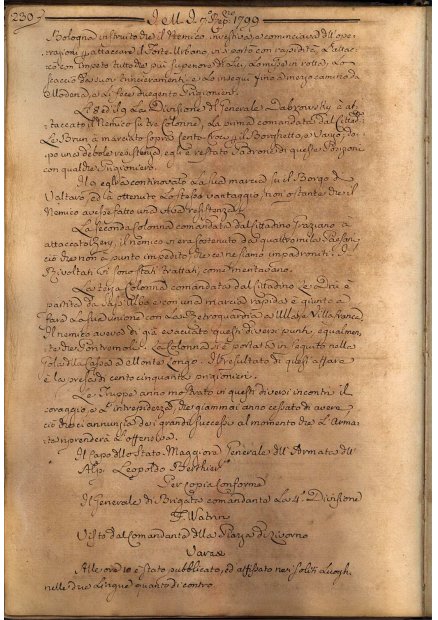 230
1799
Bologna instruito che il Nemico investiva, e cominciava dell'ope-
razioni p attaccare il Forte Urbano, vi si portò con rapidità, l'attac-
cò con impeto tutto che più superiore di lui, lo mise in rotta, lo
scacciò da suoi trincieramenti, e lo inseguì fino a mezzo camino da
Modena, e vi fece duegento Prigionieri.
La Divisione del Generale Dabrowsky à at-
taccato il Nemico su tre colonne, La prima comandata dal Cittad.
Le Brun à marciato sopra Borghetto, e Varo, do-
po una debole resistenza, egli è restato Padrone di queste Posizioni
con qualche Prigioniero.
Il 9 egli à continovato la sua marcia su il Borgo di
Valtaro, ed là ottenuto lo stesso vantaggio, non ostante che il
Nemico avesse fatto una viva resistenza.
La seconda colonna comandata dal Cittadino Graziano à
attaccato il nemico vi era sostenuto da quattro mila Paesani
ciò che non à punto impedito che ce ne siamo impadroniti. I
Rivoltati vi sono stati trattati, come meritavano.
La terza colonna comandata dal Cittadino è
partita da e con una marcia rapida è giunto a
fare la sua unione con la Retroguardia a Villafranca
Il nemico aveva di già evacuato questi diversi punti egualmen-
te che Pontremoli. La Colonna si è portata in seguito nella
a Monte Longo. Il resultato di questi affare
è la presa di cento cinquanta prigionieri.
Le Truppe anno mostrato in questi diversi incontri il
coraggio, e l'intrepidezza, che giammai anno cessato di avere
ciò che ci annunzia dei grandi successi al momento che l'Arma-
ta riprenderà l'offensiva.
Il Capo dello Stato Maggiore Generale dell'Armata dell'
Alpi Leopoldo Berthier
Per copia conforme
Il Generale di Brigata comandante la 4.a Divisione
F. Watrin
Visto dal Comandante della Piazza di Livorno
Varax
Alle ore 10 è stato pubblicato, ed affissato ne' soliti Luoghi
nelle due Lingue quanto di contro.